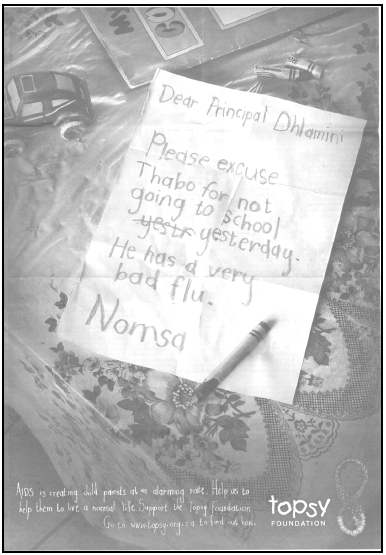 Dear Principal Dhlamini
Please excuse
Thabo for not
going to school
yestr yesterday.
He has a very
bad flu.
Nomsa
AIDS is creating child parents at an alarming rate. Help us to
help them to live a normal life. Support the Topsy Foundation
Go to www.topsy.org.za to find out how.
topsy
FOUNDATION